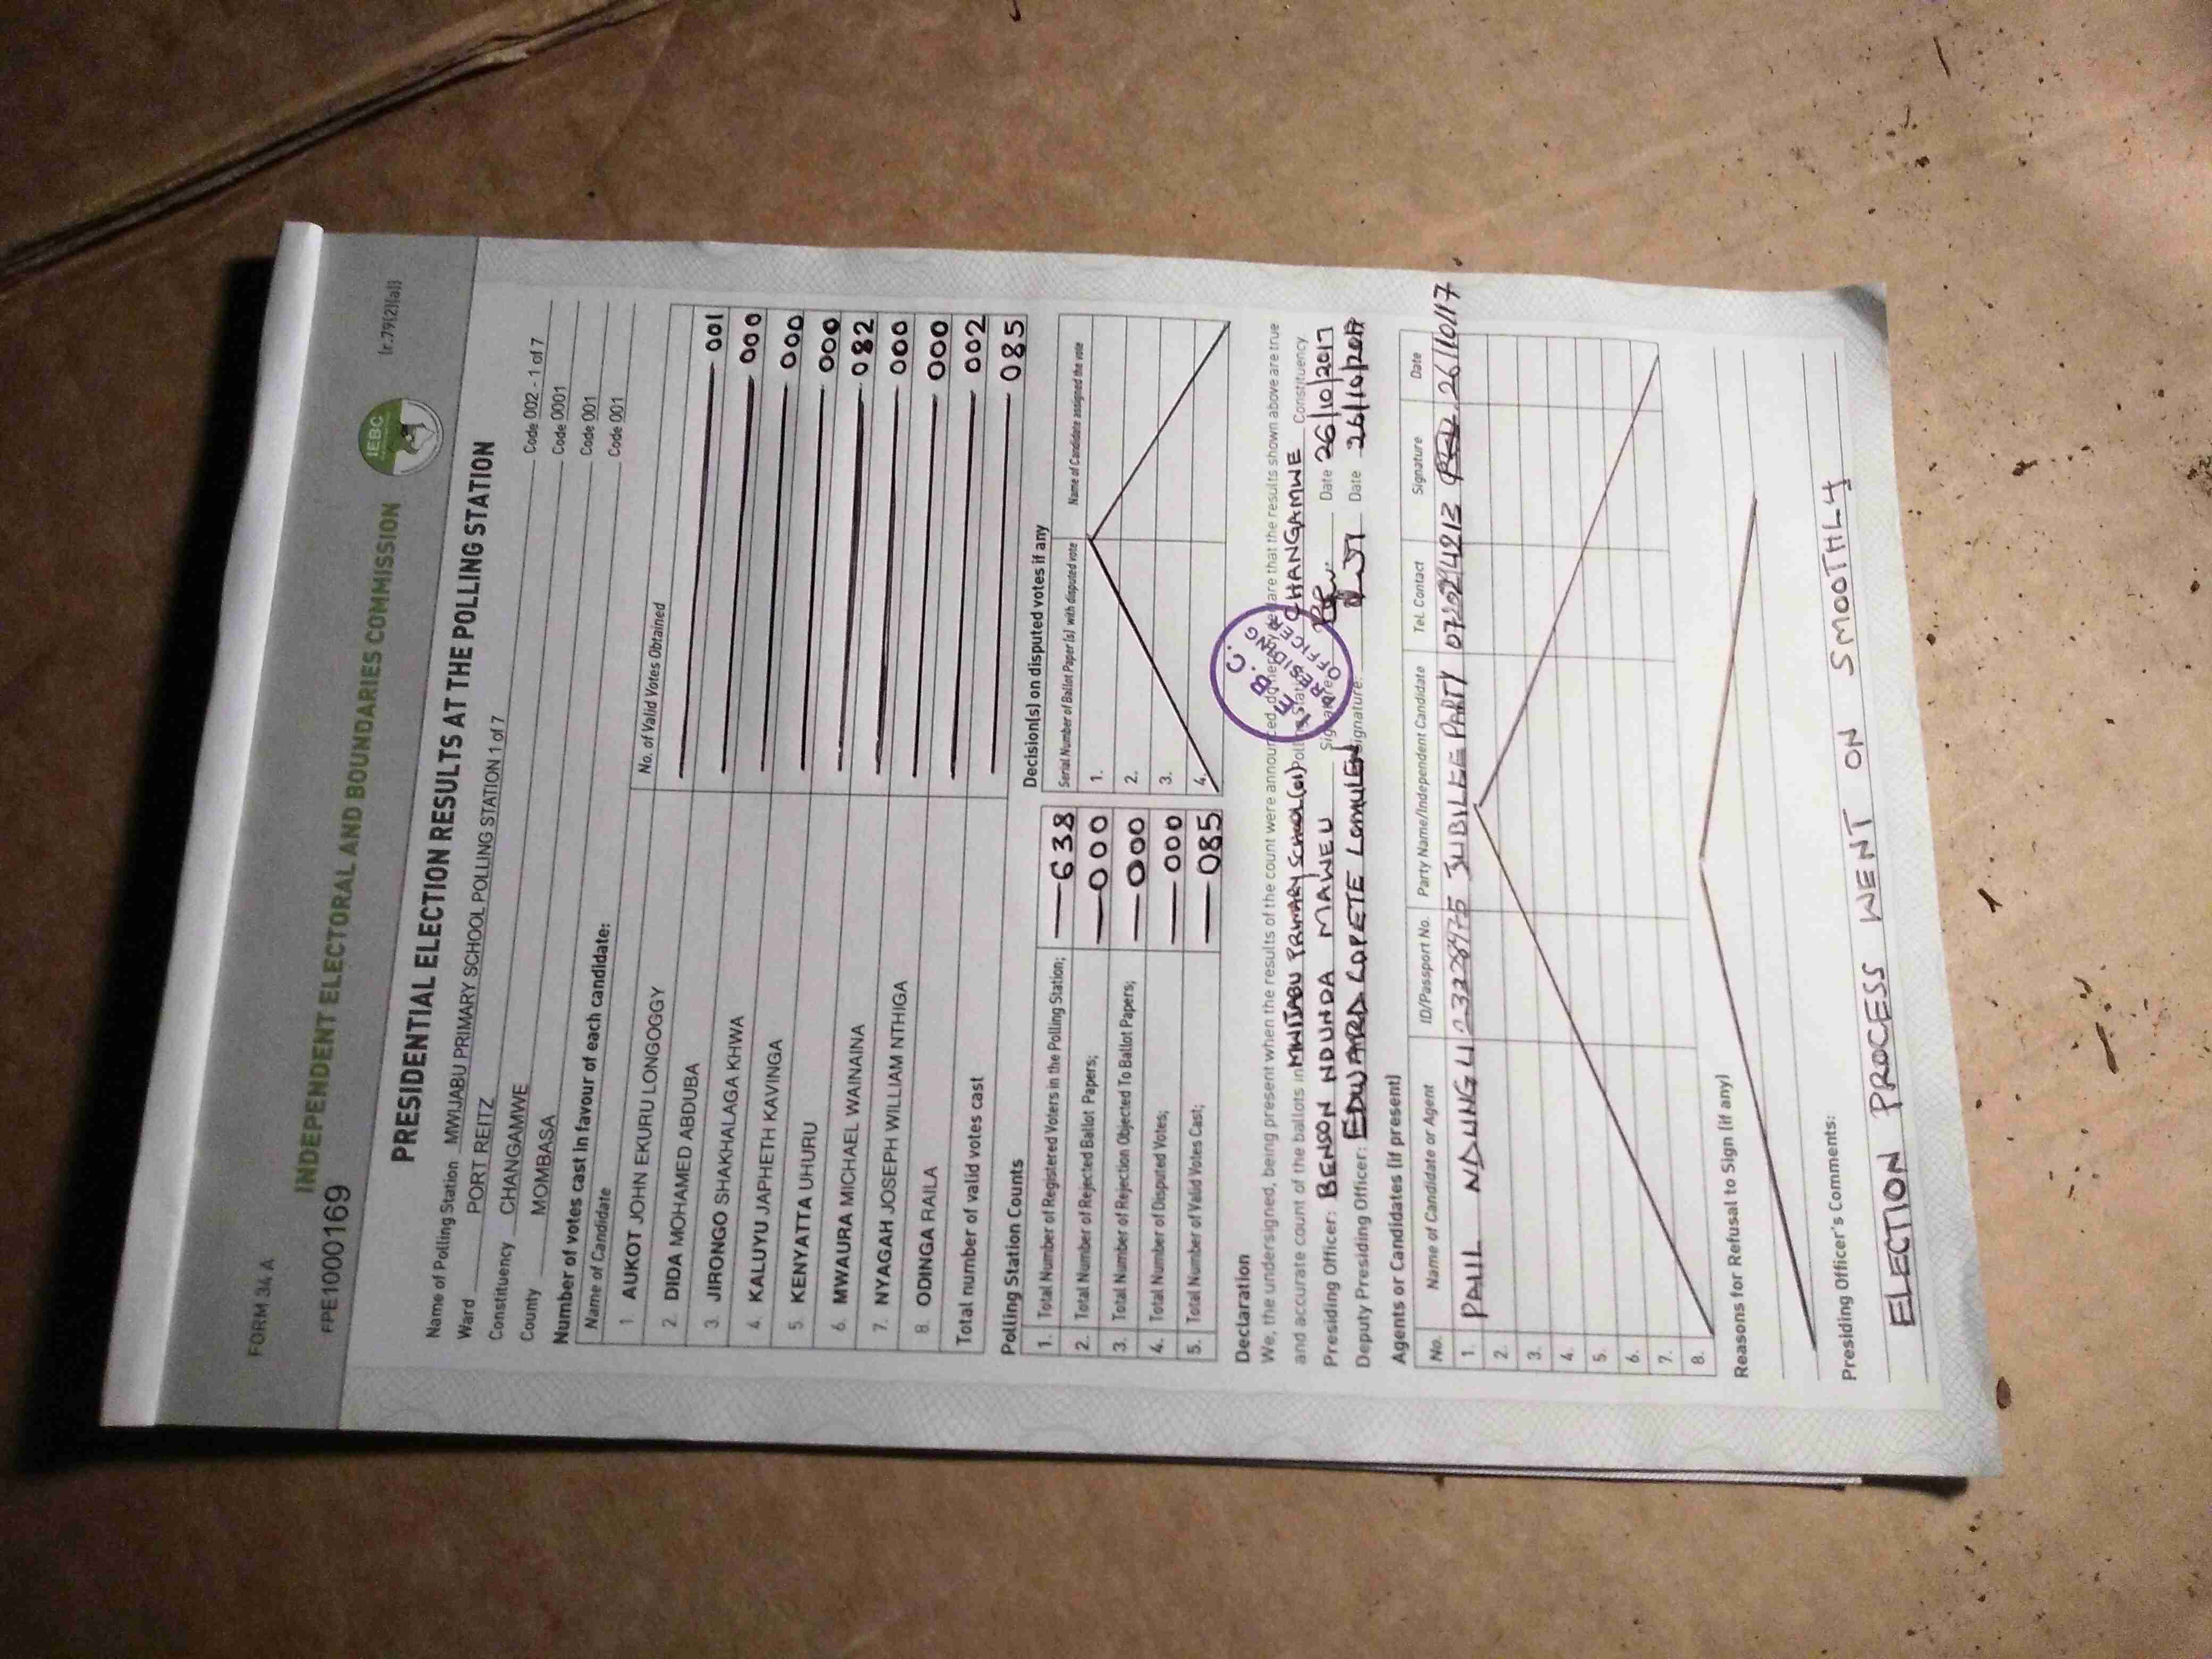 FORM 34 A
(r.79(2)(a))
INDEPENDENT ELECTORAL AND BOUNDARIES COMMISSION
IEBC
FPE1000169
PRESIDENTIAL ELECTION RESULTS AT THE POLLING STATION
Name of Polling Station MWIJABU PRIMARY SCHOOL POLLING STATION 1 of 7 Code 002 - 1 of 7
Ward PORT REITZ Code 0001
Constituency CHANGAMWE Code 001
County MOMBASA Code 001
Number of votes cast in favour of each candidate:
Name of Candidate No. of Valid Votes Obtained
1. AUKOT JOHN EKURU LONGOGGY 001
2. DIDA MOHAMED ABDUBA 000
3. JIRONGO SHAKHALAGA KHWA 000
4. KALUYU JAPHETH KAVINGA 000
5. KENYATTA UHURU 082
6. MWAURA MICHAEL WAINAINA 000
7. NYAGAH JOSEPH WILLIAM NTHIGA 000
8. ODINGA RAILA 002
Total number of valid votes cast 085
Polling Station Counts
1. Total Number of Registered Voters in the Polling Station; 638
2. Total Number of Rejected Ballot Papers; 000
3. Total Number of Rejection Objected To Ballot Papers; 000
4. Total Number of Disputed Votes; 000
5. Total Number of Valid Votes Cast; 085
Decision(s) on disputed votes if any
Serial Number of Ballot Paper (s) with disputed vote Name of Candidate assigned the vote
1.
2.
3.
4.
Declaration
We, the undersigned, being present when the results of the count were announced, do hereby declare that the results shown above are true
and accurate count of the ballots in MWIJABU PRIMARY SCHOOL (01) Polling Station CHANGAMWE Constituency.
Presiding Officer: BENSON NDUNDA MAWEU Signature: Date 26/10/2017
Deputy Presiding Officer: EDWARD LOPETE LOMULEN Signature: Date 26/10/2017
I.E.B.C. PRESIDING OFFICER
Agents or Candidates (if present)
No. Name of Candidate or Agent ID/Passport No. Party Name/Independent Candidate Tel. Contact Signature Date
1. PAUL NDUNGLI 23228975 JUBILEE PARTY 26/10/17
2.
3.
4.
5.
6.
7.
8.
Reasons for Refusal to Sign (if any)
Presiding Officer's Comments:
ELECTION PROCESS WENT ON SMOOTHLY